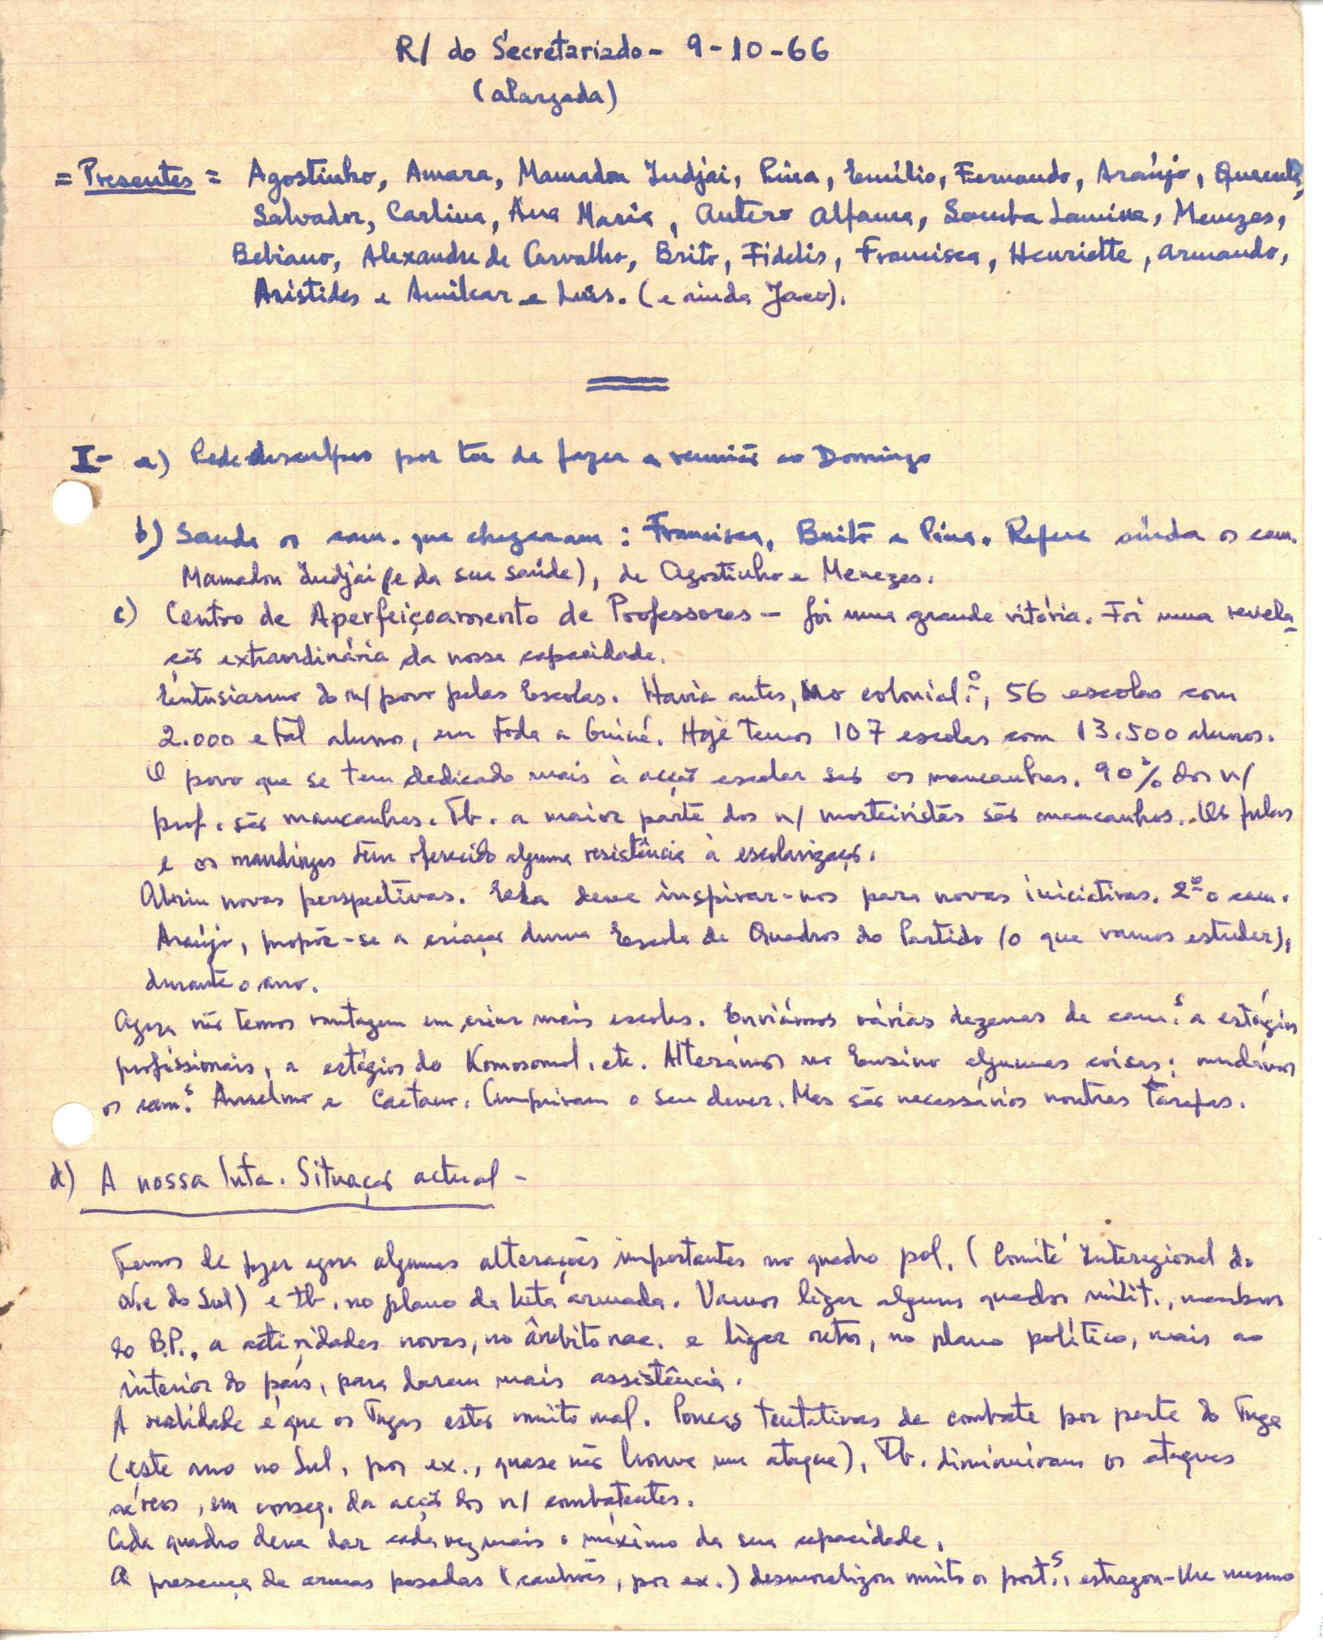 R/ do Secretariado - 9-10-66
(alargada)
= Presentes = Agostinho, Amara, Mamadou Indjai, Pina, Emílio, Fernando, Araújo,
Salvador, Carlina, Ana Maria, Antero Alfama, Samba Lamine, Menezes,
Bebiano, Alexandre de Carvalho, Brito, Fidelis, Francisca, Henriette, Armando,
Aristides e Amílcar e Luís. (e ainda Jaco).
I- a) Pede desculpas por ter de fazer a reunião ao Domingo
b) Saúda os cam. que chegaram: Francisca, Brito e Pina. Refere ainda os cam.
Mamadou Indjai (e da sua saúde), de Agostinho e Menezes.
c) Centro de Aperfeiçoamento de Professores - foi uma grande vitória. Foi uma revela-
ção extraordinária da nossa capacidade.
Entusiasmo do n/ povo pelas Escolas. Havia antes, no colonial.º, 56 escolas com
2.000 e tal alunos, em toda a Guiné. Hoje temos 107 escolas com 13.500 alunos.
O povo que se tem dedicado mais à acção escolar são os mancanhas. 90% dos n/
prof. são mancanhas. Tb. a maior parte dos n/ morteiristas são mancanhas. Os fulas
e os mandingas têm oferecido alguma resistência à escolarização.
Abriu novas perspectivas. deve inspirar-nos para novas iniciativas. 2º o cam.
Araújo, propõe-se a criação duma Escola de Quadros do Partido (o que vamos estudar),
durante o ano.
Agora não temos vantagem em criar mais escolas. Enviámos várias dezenas de cam.s a estágios
profissionais, a estágios do Komosomol, etc. Alterámos no Ensino algumas coisas: mudámos
os cam.s Anselmo e Caetano. Cumpriram o seu dever. Mas são necessários noutras tarefas.
d) A nossa luta. Situação actual -
Temos de fazer agora algumas alterações importantes no quadro pol. (Comité Interegional do
N. e do Sul) e tb. no plano da luta armada. Vamos ligar alguns quadros milit., membros
do B.P., a actividades novas, no âmbito nac. e ligar outros, no plano político, mais ao
interior do país, para darem mais assistência.
A realidade é que os Tugas estão muito mal. Poucas tentativas de combate por parte do Tuga
(este ano no Sul, por ex., quase não houve um ataque). Tb. diminuiram os ataques
aéreos, em conseq. da acção dos n/ combatentes.
Cada quadro deve dar cada vez mais o máximo da sua capacidade.
A presença de armas pesadas (canhões, por ex.) desmoralizou muito os port.s, estragou-lhe mesmo